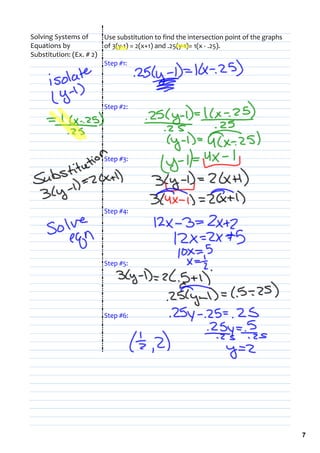 Solving Systems of
Equations by
Substitution: (Ex. # 2)
Use substitution to find the intersection point of the graphs
of 3(y-1) = 2(x+1) and .25(y-1)= 1(x - .25).
Step #1:
isolate
(y-1)
.25(y-1)=1(x-.25)
Step #2:
= 1(x-.25)
.25
.25(y-1)=1(x-.25)
.25 .25
(y-1)=4(x-.25)
Step #3:
Substitution
3(y-1)=2(x+1)
(y-1)=4x-1
3(y-1)=2(x+1)
3(4x-1)=2(x+1)
Step #4:
Solve
eqn
12x-3=2x+2
12x=2x+5
10x=5
x=1/2.
Step #5:
3(y-1)=2(.5+1)
.25(y-1)=(.5-.25)
Step #6:
.25y-.25=.25
.25y=.5
.25 .25
y=2
(1/2,2)
7